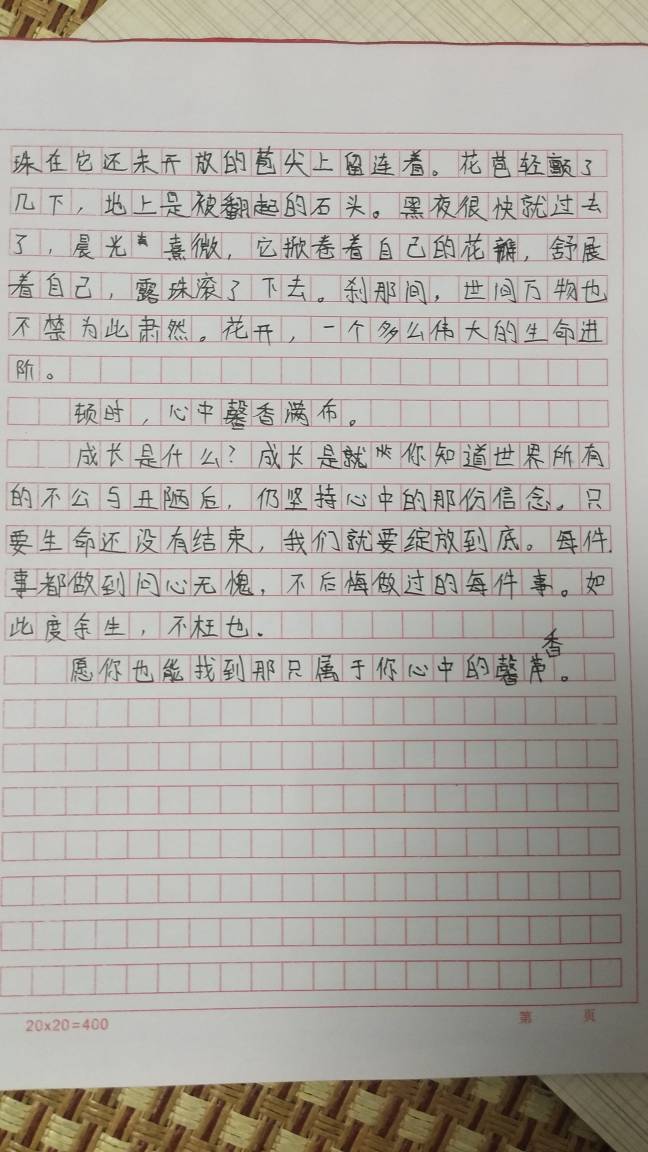 珠在它还未开放的苞尖上留连着。花苞轻颤了
几下，地上是被翻起的石头。黑夜很快就过去
了，晨光熹微，它掀卷着自己的花瓣，舒展
着自己，露珠滚了下去。刹那间，世间万物也
不禁为此肃然。花开，一个多么伟大的生命进
阶。
顿时，心中馨香满布。
成长是什么？成长是就你知道世界所有
的不公与丑陋后，仍坚持心中的那份信念。只
要生命还没有结束，我们就要绽放到底。每件
事都做到问心无愧，不后悔做过的每件事。如
此度余生，不枉也.
香
愿你也能找到那只属于你心中的馨。
20x20=400
第 页